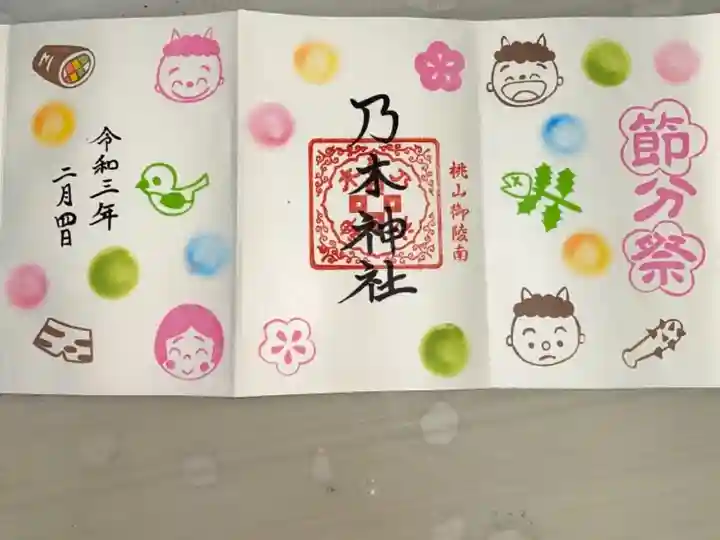 節分祭
桃山御陵南
乃木神社
令和三年
二月四日